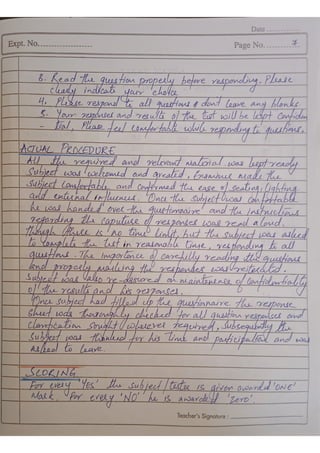 Date
Expt. No.
Page No. 7
3. Read the question properly before responding. Please
clearly indicate your choice
4. Please respond to all questions & dont leave any blanks
5. Your responses and results of the test will be kept confiden
tial. Please feel comfortable while responding to questions.
ACTUAL PROCEDURE
All the required and relevant material was kept ready
subject was welcomed and greated, Examiner made the
subject comfortable and confirmed the ease of seating, lighting
and external influences. Once the subject was comfortable
he was handed over the questionnaire and the instructions
regarding the caputure of responses was read aloud.
Though there is no time limit, but the subject was asked
to complete the test in reasonable time, responding to all
questions. The importance of carefully reading the questions
and properly marking the responses was reiterated.
Subject was also re-assured on maintenance of confidentiality
of the results and his responses.
Once subject had filled up the questionnaire the response
sheet was thoroughly checked for all question responses and
clarification sought wherever required. Subsequently the
subject was thanked for his time and participation and was
asked to leave.
SCORING
For every 'YES' the subject/testee is given awarded 'ONE'
Mark. For every 'NO' he is awarded 'Zero'.
Teacher's Signature :